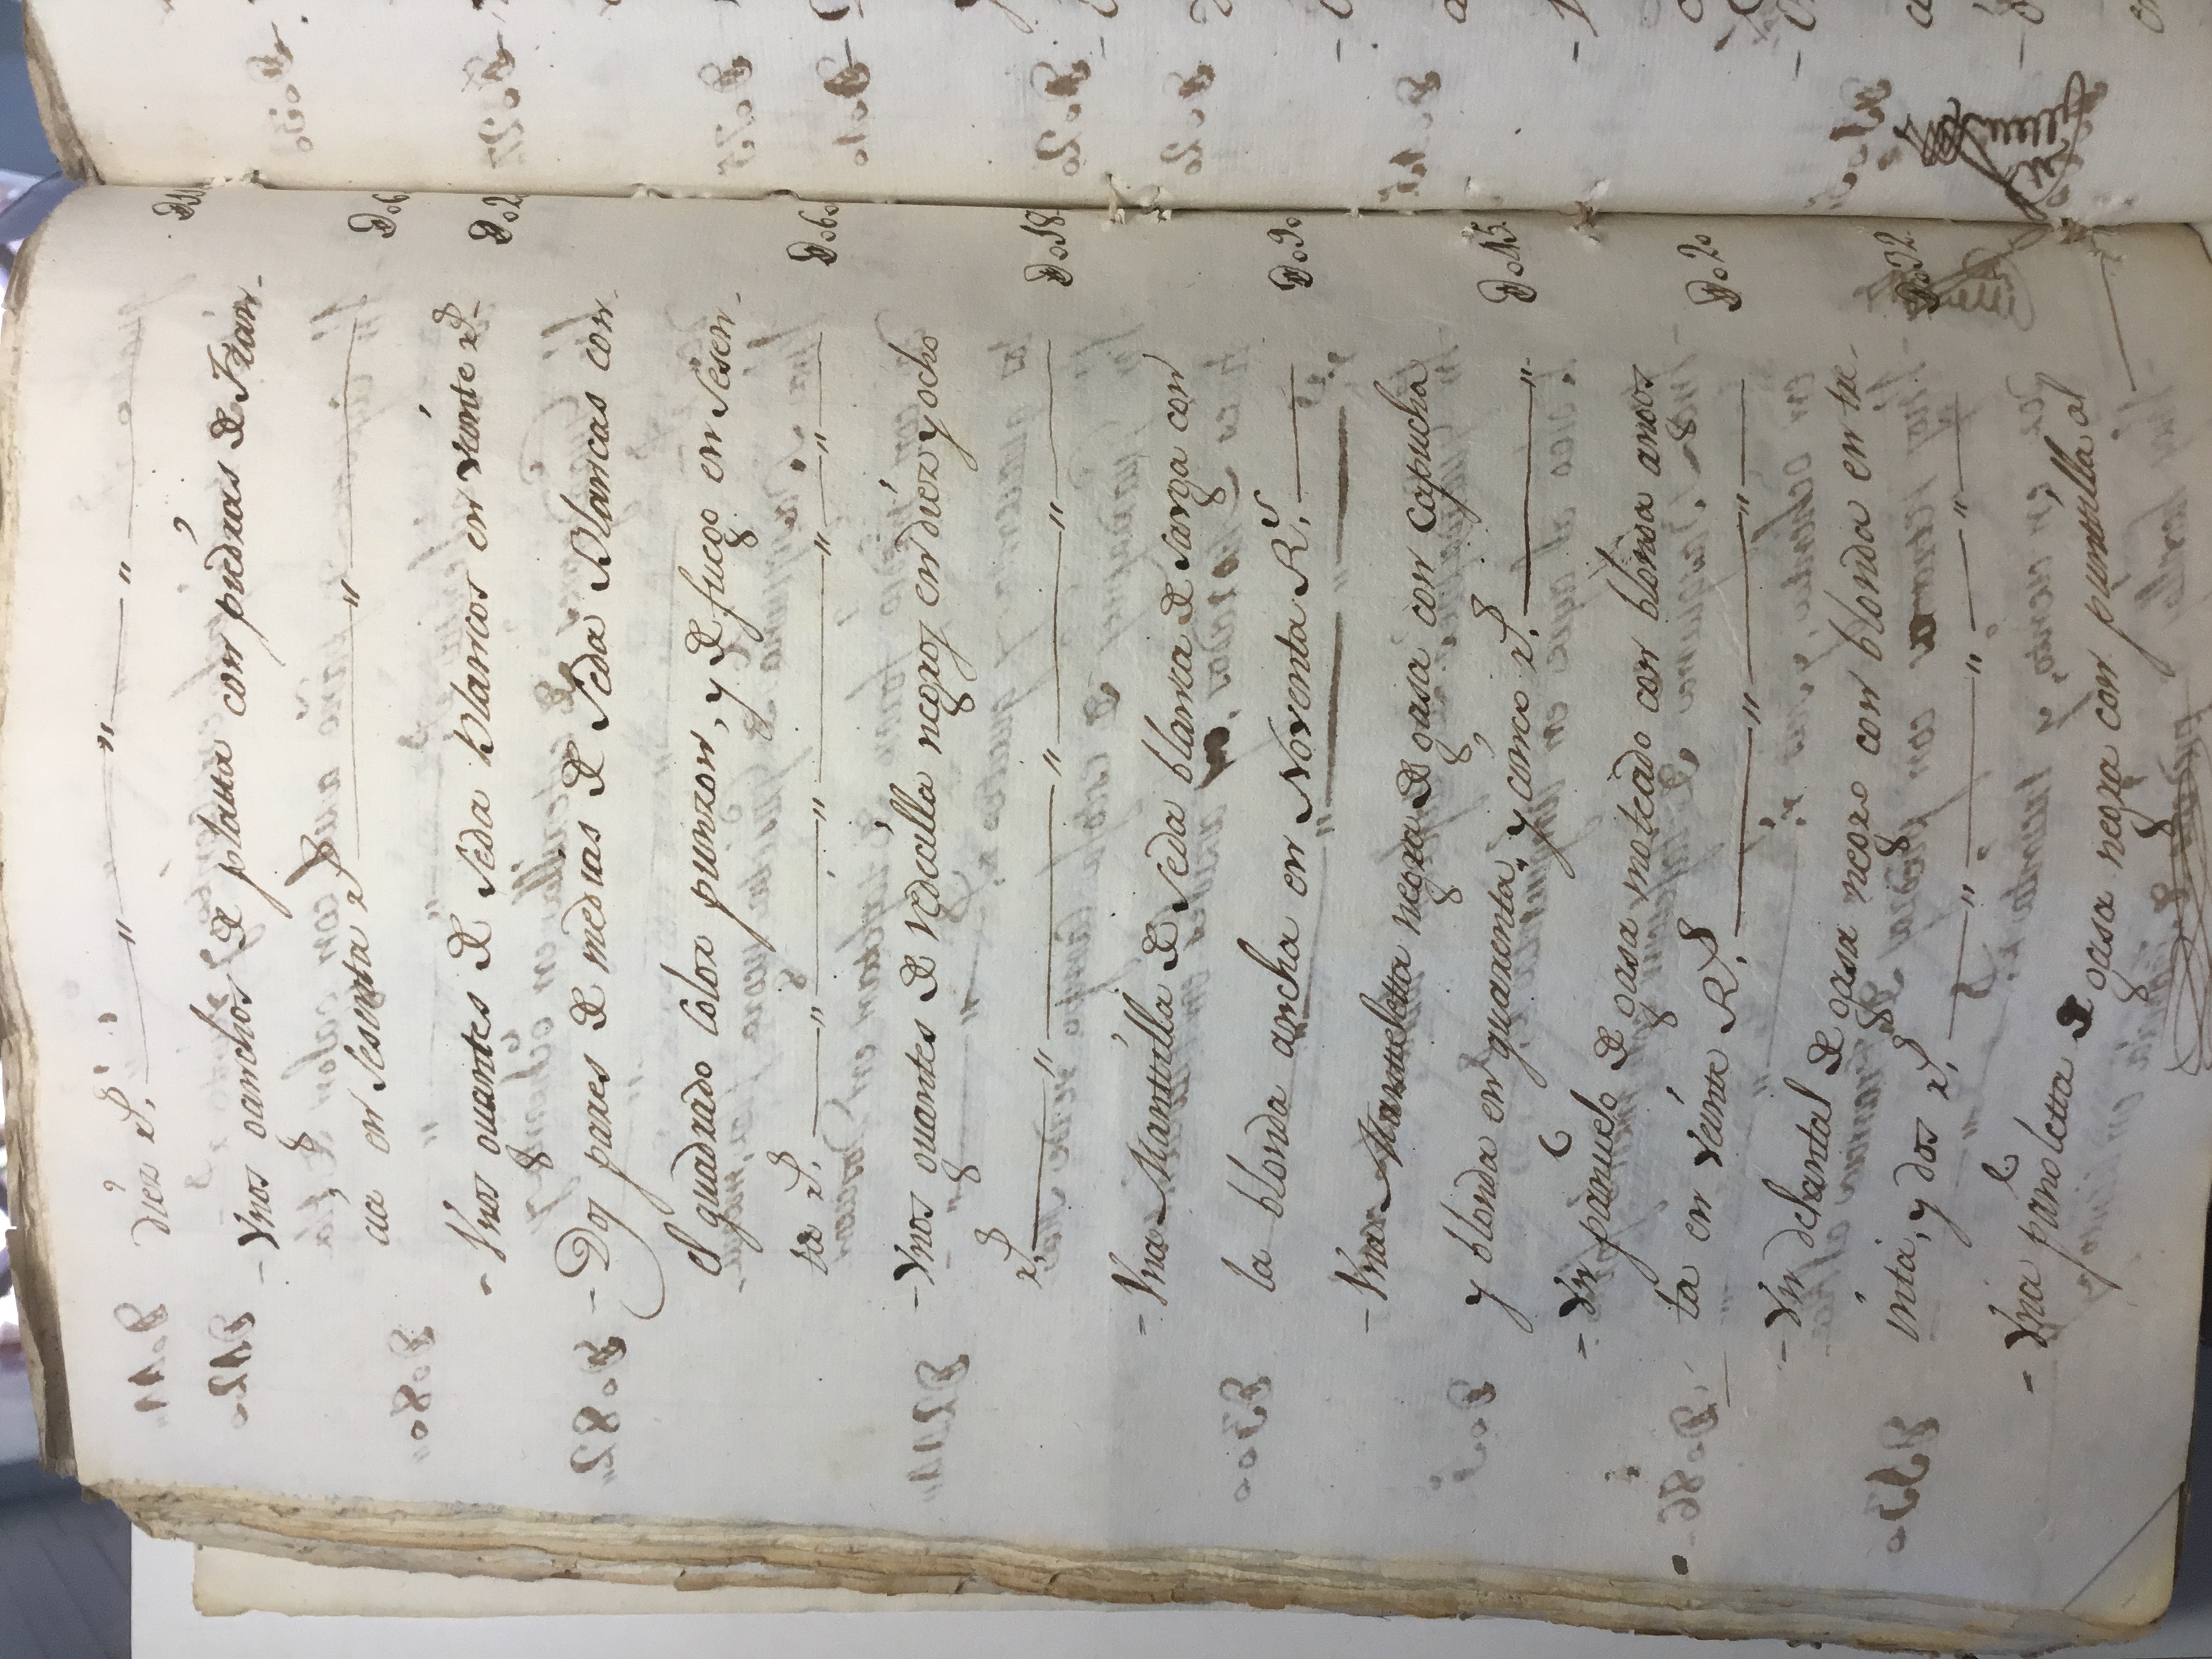 diez rs.
- Vnos ganchos de plata con piedras de Fran-
cia en Sesenta rs D.o6
- Vnos guantes de seda blancos en veinte rs D.o2
- Dos pares de medias de seda blancas con
el quadrado color punzon, y de fuego en Sesen-
ta rs. D.o6o
- Vnos guantes de redecilla negros en diez y ocho
rs. D.o18
- Vna Mantilla de Seda blanca de sarga con
la blonda ancha en Noventa Rs. D.o9o
- Vna Manueletta negra de gasa con capucha
y blonda en quarenta, y cinco rs. D.o45
- Vn pañuelo de gasa moteado con blonda ango.s
ta en veinte Rs. D.o2o
- Vn delantal de gasa negro con blonda en tre-
inta, y dos rs. D.o32
- Vna pañoletta de gasa negra con puntilla al